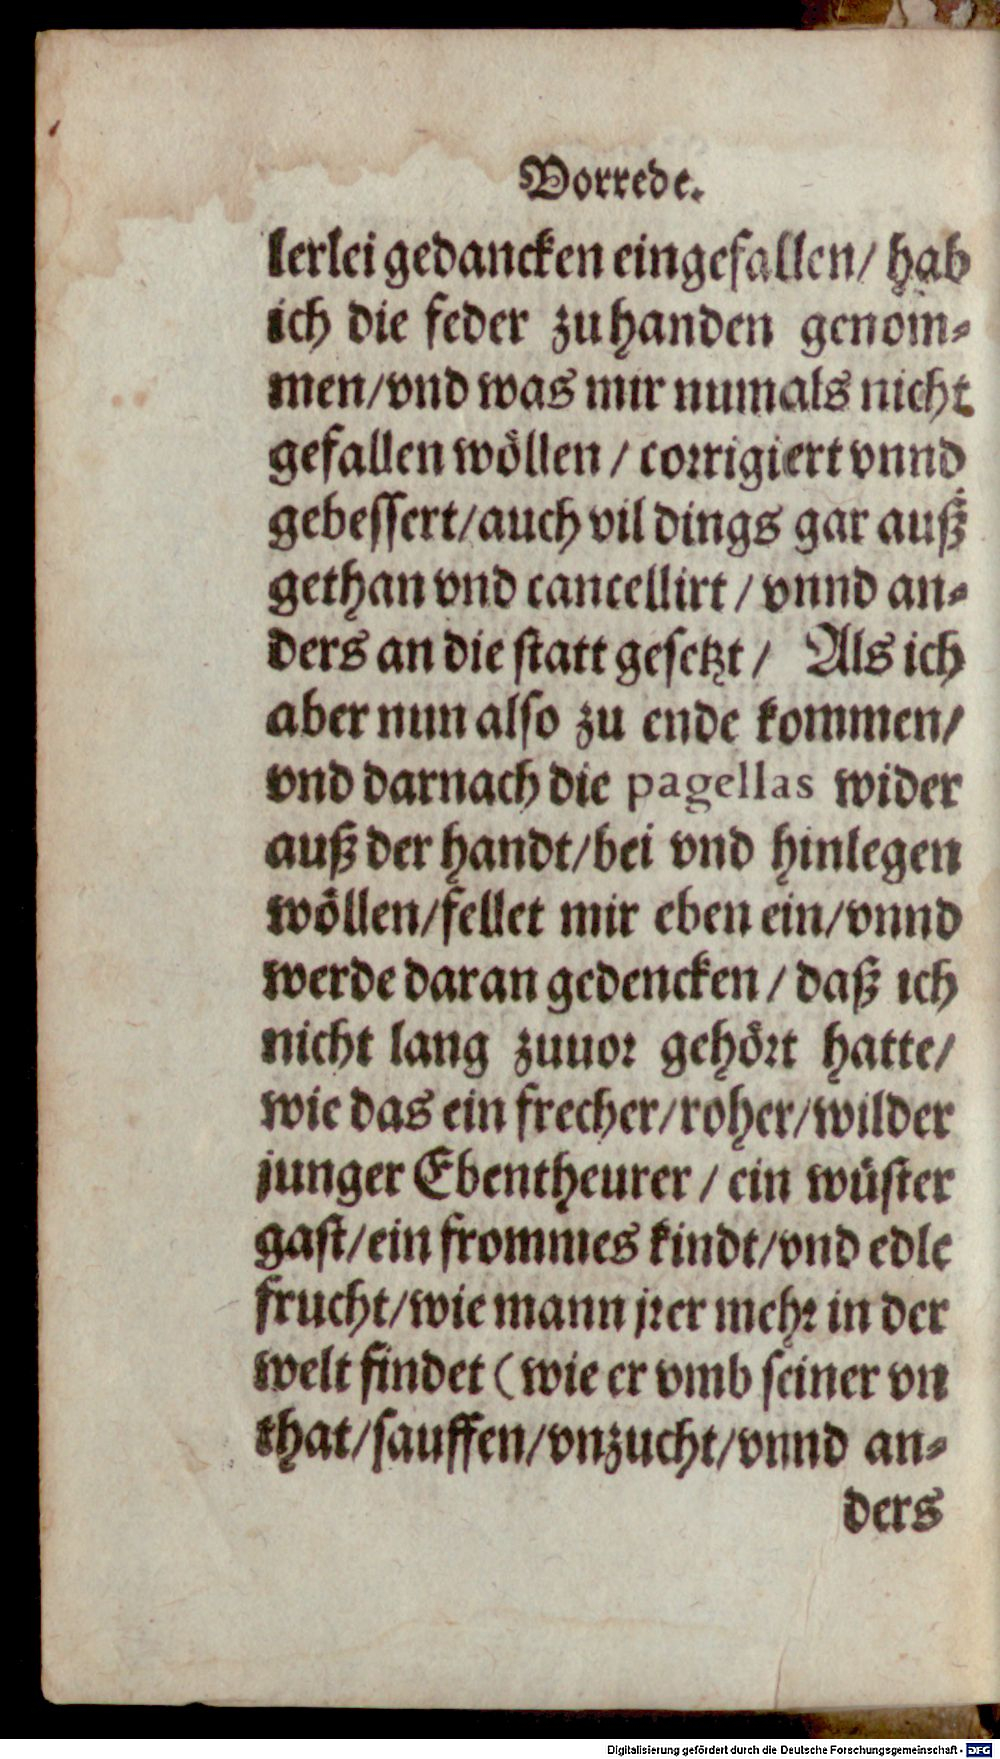 Vorrede.
lerlei gedancken eingefallen/ hab
ich die feder zu handen genom⸗
men/vnd was mir numals nicht
gefallen wöllen / corrigiert vnnd
gebessert/auch vil dings gar auß
gethan vnd cancellirt / vnnd an⸗
ders an die statt gesetzt / Als ich
aber nun also zu ende kommen/
vnd darnach die pagellas wider
auß der handt/bei vnd hinlegen
wöllen/fellet mir eben ein/vnnd
werde daran gedencken / daß ich
nicht lang zuuor gehört hatte/
wie das ein frecher/roher/wilder
junger Ebentheurer / ein wüster
gast/ein frommes kindt/vnd edle
frucht/wie mann jrer mehr in der
welt findet (wie er vmb seiner vn
that/sauffen/vnzucht/vnnd an⸗
ders
Digitalisierung gefördert durch die Deutsche Forschungsgemeinschaft - DFG